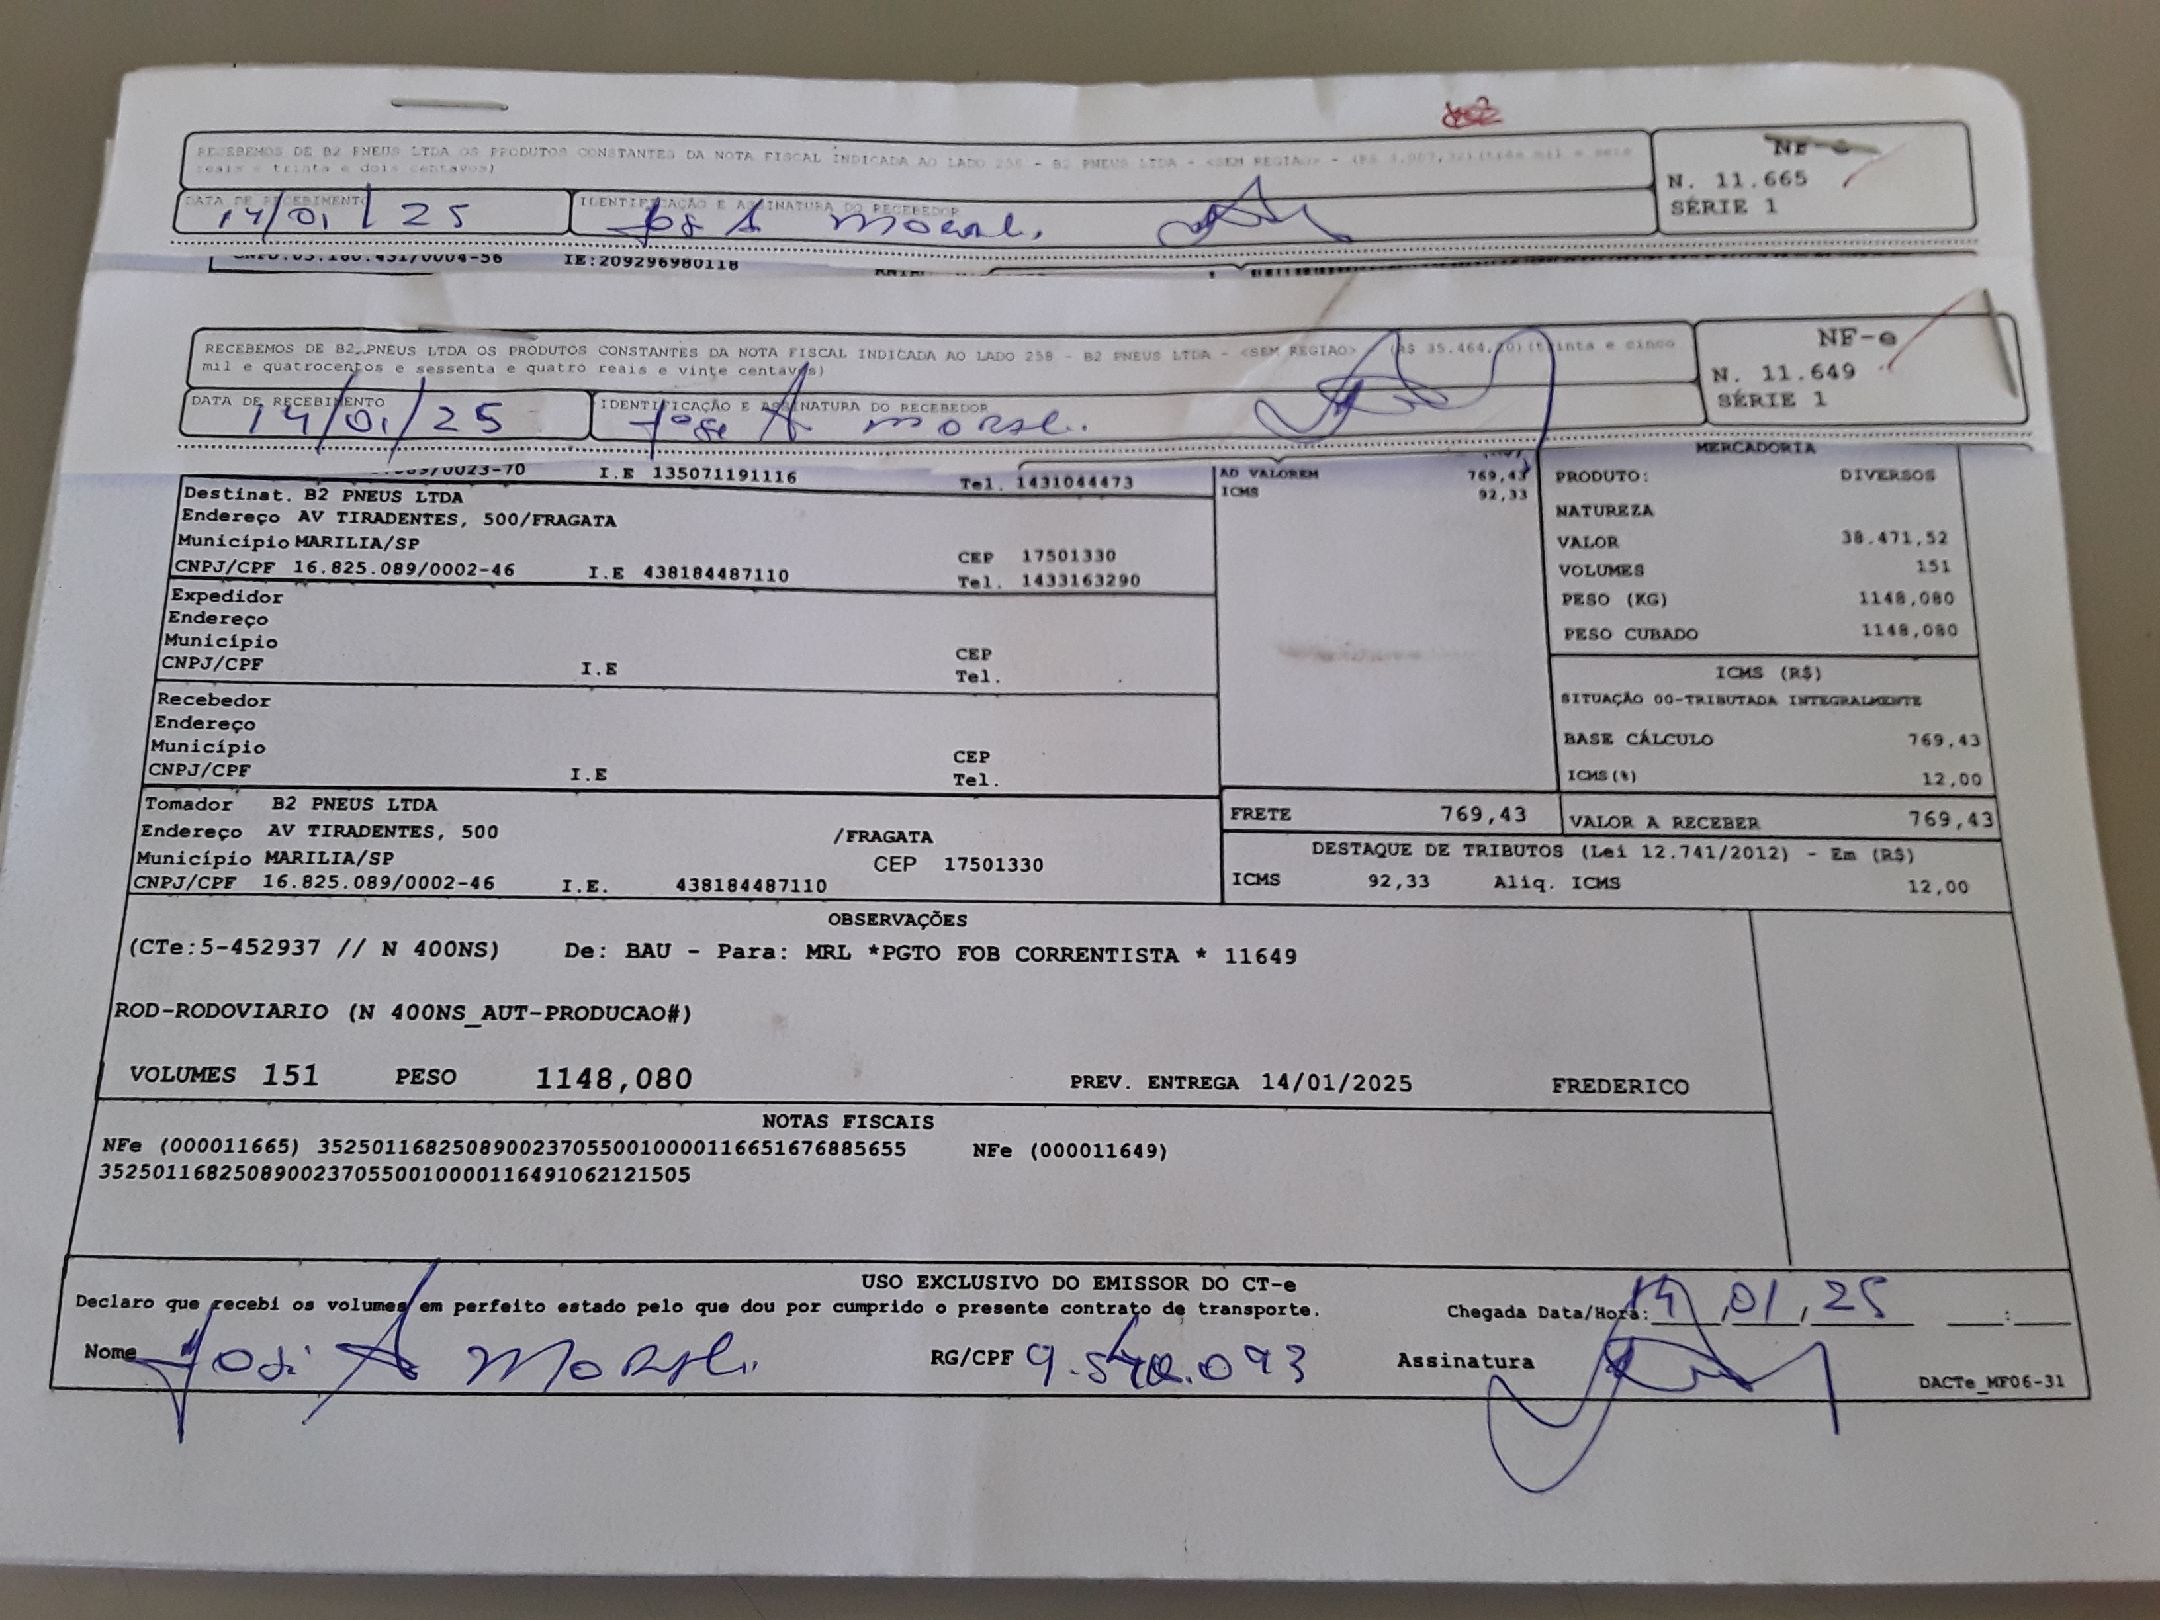 RECEBEMOS DE B2 PNEUS LTDA OS PRODUTOS CONSTANTES DA NOTA FISCAL INDICADA AO LADO 258 - B2 PNEUS LTDA - <SEM REGIAO> - (três mil e sete
reais e trinta e dois centavos)
NF-e
N. 11.665
SÉRIE 1
DATA DE RECEBIMENTO
14/01/25
IDENTIFICAÇÃO E ASSINATURA DO RECEBEDOR
IE:209296980118
RECEBEMOS DE B2 PNEUS LTDA OS PRODUTOS CONSTANTES DA NOTA FISCAL INDICADA AO LADO 258 - B2 PNEUS LTDA - <SEM REGIAO> (R$ 35.464,20)(trinta e cinco
mil e quatrocentos e sessenta e quatro reais e vinte centavos)
NF-e
N. 11.649
SÉRIE 1
DATA DE RECEBIMENTO
14/01/25
IDENTIFICAÇÃO E ASSINATURA DO RECEBEDOR
José A
/0023-70 I.E 135071191116 Tel. 1431044473
Destinat. B2 PNEUS LTDA
Endereço AV TIRADENTES, 500/FRAGATA
Município MARILIA/SP CEP 17501330
CNPJ/CPF 16.825.089/0002-46 I.E 438184487110 Tel. 1433163290
Expedidor
Endereço
Município CEP
CNPJ/CPF I.E Tel.
Recebedor
Endereço
Município CEP
CNPJ/CPF I.E Tel.
Tomador B2 PNEUS LTDA
Endereço AV TIRADENTES, 500 /FRAGATA
Município MARILIA/SP CEP 17501330
CNPJ/CPF 16.825.089/0002-46 I.E. 438184487110
AD VALOREM 769,43
ICMS 92,33
MERCADORIA
PRODUTO: DIVERSOS
NATUREZA
VALOR 38.471,52
VOLUMES 151
PESO (KG) 1148,080
PESO CUBADO 1148,080
ICMS (R$)
SITUAÇÃO 00-TRIBUTADA INTEGRALMENTE
BASE CÁLCULO 769,43
ICMS(%) 12,00
FRETE 769,43 VALOR A RECEBER 769,43
DESTAQUE DE TRIBUTOS (Lei 12.741/2012) - Em (R$)
ICMS 92,33 Aliq. ICMS 12,00
OBSERVAÇÕES
(CTe:5-452937 // N 400NS) De: BAU - Para: MRL *PGTO FOB CORRENTISTA * 11649
ROD-RODOVIARIO (N 400NS_AUT-PRODUCAO#)
VOLUMES 151 PESO 1148,080 PREV. ENTREGA 14/01/2025 FREDERICO
NOTAS FISCAIS
NFe (000011665) 35250116825089002370550010000116651676885655 NFe (000011649)
35250116825089002370550010000116491062121505
USO EXCLUSIVO DO EMISSOR DO CT-e
Declaro que recebi os volumes em perfeito estado pelo que dou por cumprido o presente contrato de transporte. Chegada Data/Hora: 14,01,25 :
Nome José A RG/CPF Assinatura
DACTe_MF06-31